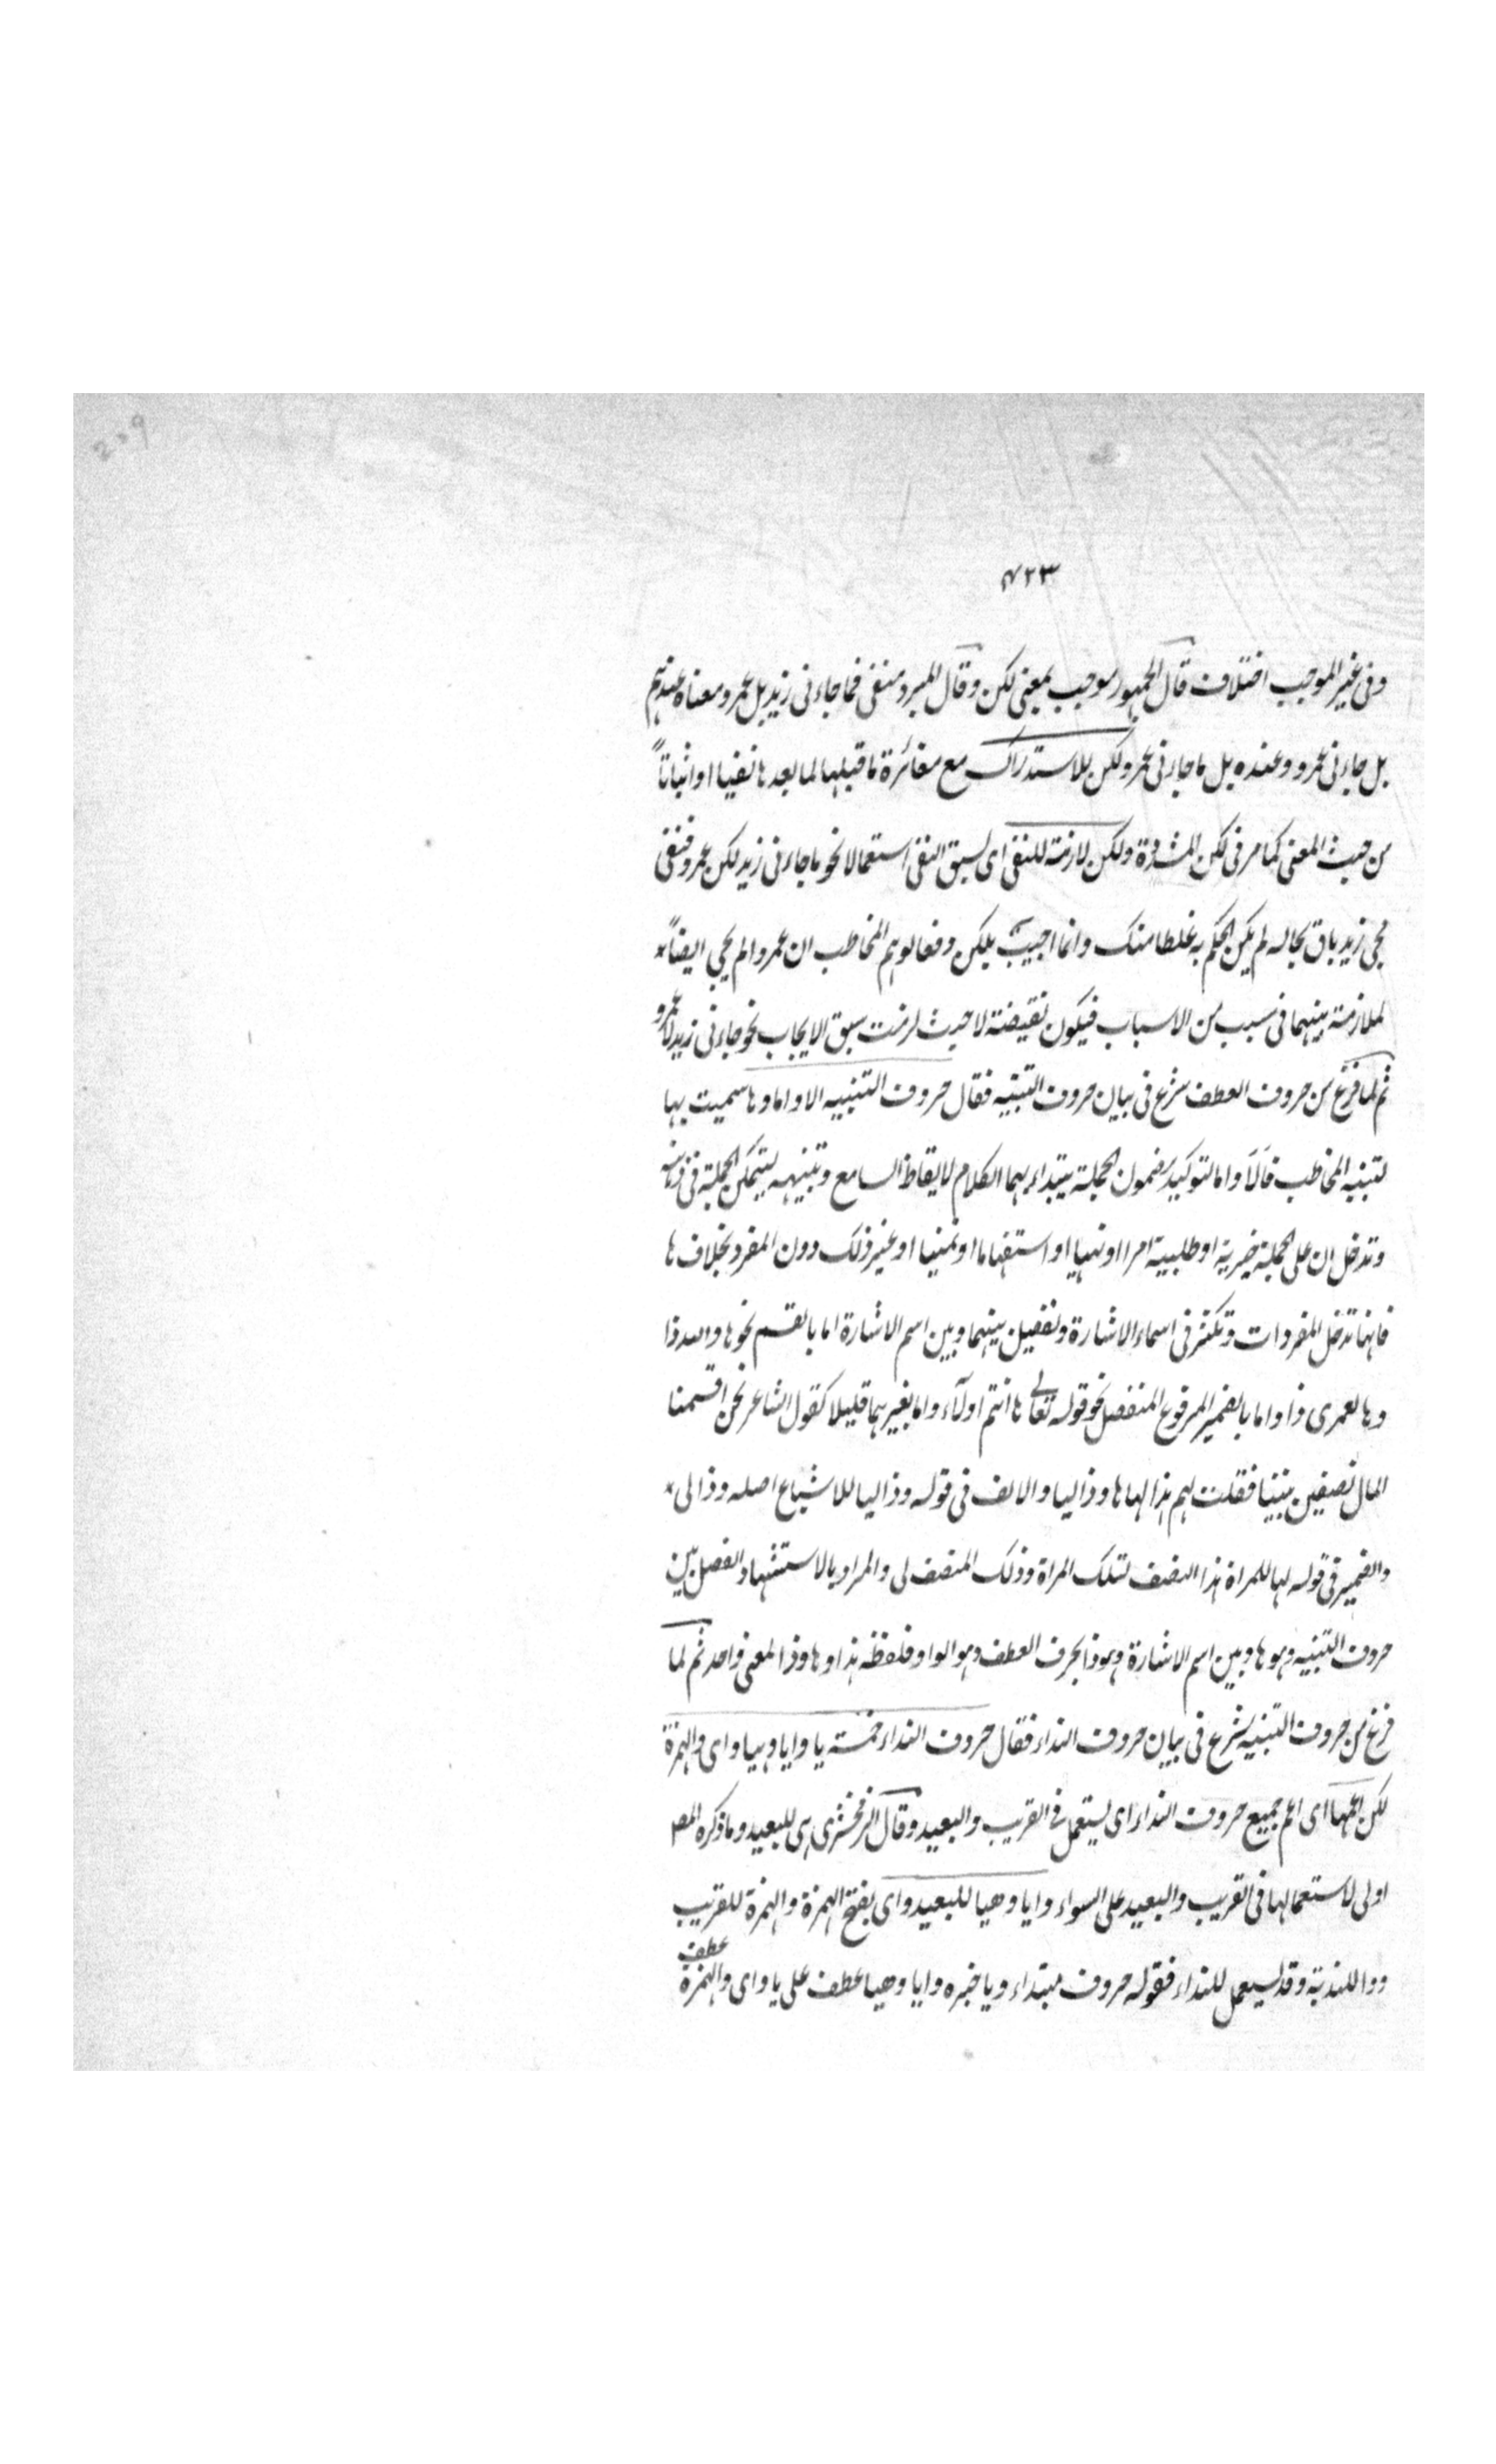 209
۴۲۳
وفى غير الموجب اختلاف قال الجمهور موجب بمعنى لكن وقال المبرد منفى فما جاءنى زيد بل عمرو معناه عندهم
بل جاءنى عمرو وعنده بل ما جاءنى عمرو ولكن للاستدراك مع مغائرة ما قبلها لما بعدها نفيا او اثباتاً
من حيث المعنى كما مر فى لكن المشددة ولكن لازمة للنفى اى لسبق النفى استعمالا نحو ما جاءنى زيد لكن عمرو فنفى
مجى زيد باق بحاله لم يكن الحكم به غلطا منك وانما اجيبت بلكن دفعا لوهم المخاطب ان عمروا لم يجى ايضاً
لملازمة بينهما فى سبب من الاسباب فيكون نقيضة لا حيث لزمت سبق الايجاب نحو جاءنى زيد لا عمرو
ثم لما فرغ من حروف العطف شرع فى بيان حروف التنبيه فقال حروف التنبيه الا واما وها سميت بها
لتنبيه المخاطب فالا واما لتوكيد مضمون الجملة يبتداء بهما الكلام لايقاظ السامع وتنبيهه ليتمكن الجملة فى ذهنه
وتدخلان على الجملة خبرية او طلبية امرا او نهيا او استفهاما او تمنيا او غير ذلك دون المفرد بخلاف ها
فانها تدخل المفردات وتكثر فى اسماء الاشارة وتفصيل بينهما وبين اسم الاشارة اما بالقسم نحو ها والله ذا
وها لعمرى ذا واما بالضمير المرفوع المنفصل نحو قوله تعالى ها انتم اولآء واما بغيرهما قليلا كقول الشاعر نحن اقتسمنا
المال نصفين بيننا فقلت لهم هذا لها ها وذا ليا والالف فى قوله وذا ليا للاشباع اصله وذا لى
والضمير فى قوله لها للمراة هذا النصف لتلك المراة وذلك المنصف لى والمراد بالاستشهاد الفصل بين
حروف التنبيه وهو ها وبين اسم الاشارة وهو ذا بحرف العطف وهو الواو فلفظة هذا وها وذا لمعنى واحد ثم لما
فرغ من حروف التنبيه شرع فى بيان حروف النداء فقال حروف النداء خمسة يا وايا وهيا واى والهمزة
لكن اعمها اى اعم جميع حروف النداء اى يستعمل فى القريب والبعيد وقال الزمخشرى هى للبعيد وما ذكره المصـ
اولى لاستعمالها فى القريب والبعيد على السواء وايا وهيا للبعيد واى بفتح الهمزة والهمزة للقريب
ووا للندبة وقد يستعمل للنداء فقوله حروف مبتداء ويا خبره وايا وهيا عطف على يا واى والهمزة
عطف